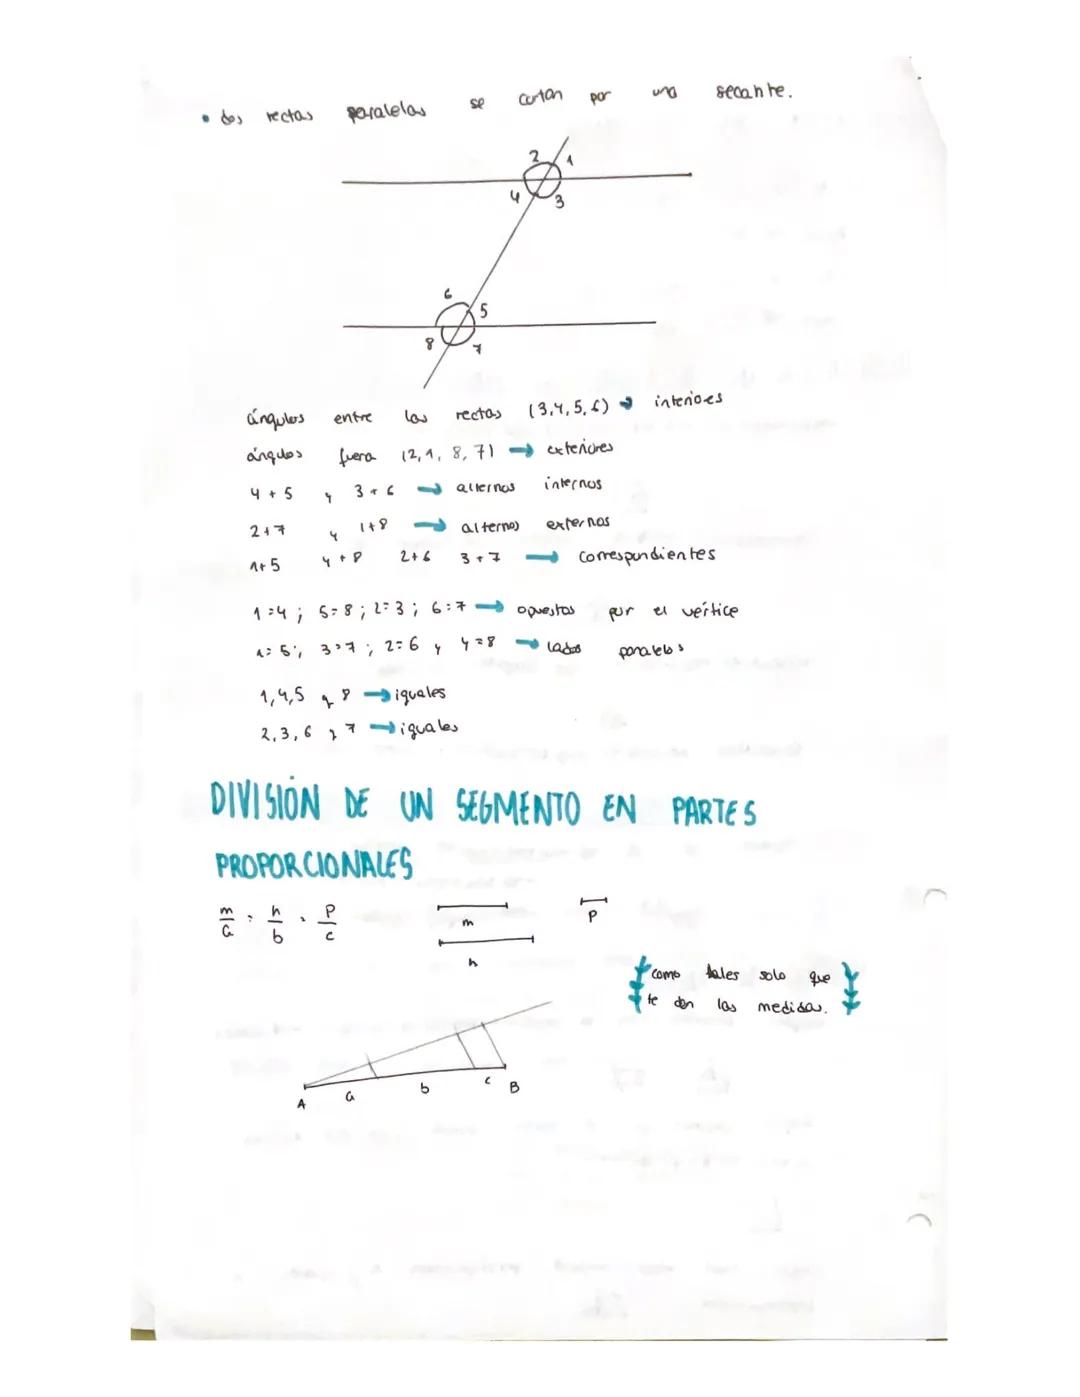 • dos rectas paralelas se cortan por una secante.
2 1
4 3
6 5
8 7
ángulos entre las rectas (3,4,5,6) → interiores
ángulos fuera (2,1,8,7) → exteriores
4+5 y 3+6 → alternos internos
2+7 y 1+8 → alternos externos
1+5 4+8 2+6 3+7 → correspondientes
1=4; 5=8; 2=3; 6=7 → opuestos por el vértice
1=5; 3=7; 2=6 y 4=8 → lados paralelos
1,4,5 y 8 → iguales
2,3,6 y 7 → iguales
DIVISIÓN DE UN SEGMENTO EN PARTES
PROPORCIONALES
m/a = n/b = p/c
m
p
n
como tales solo que
te den las medidas.
A a b c B